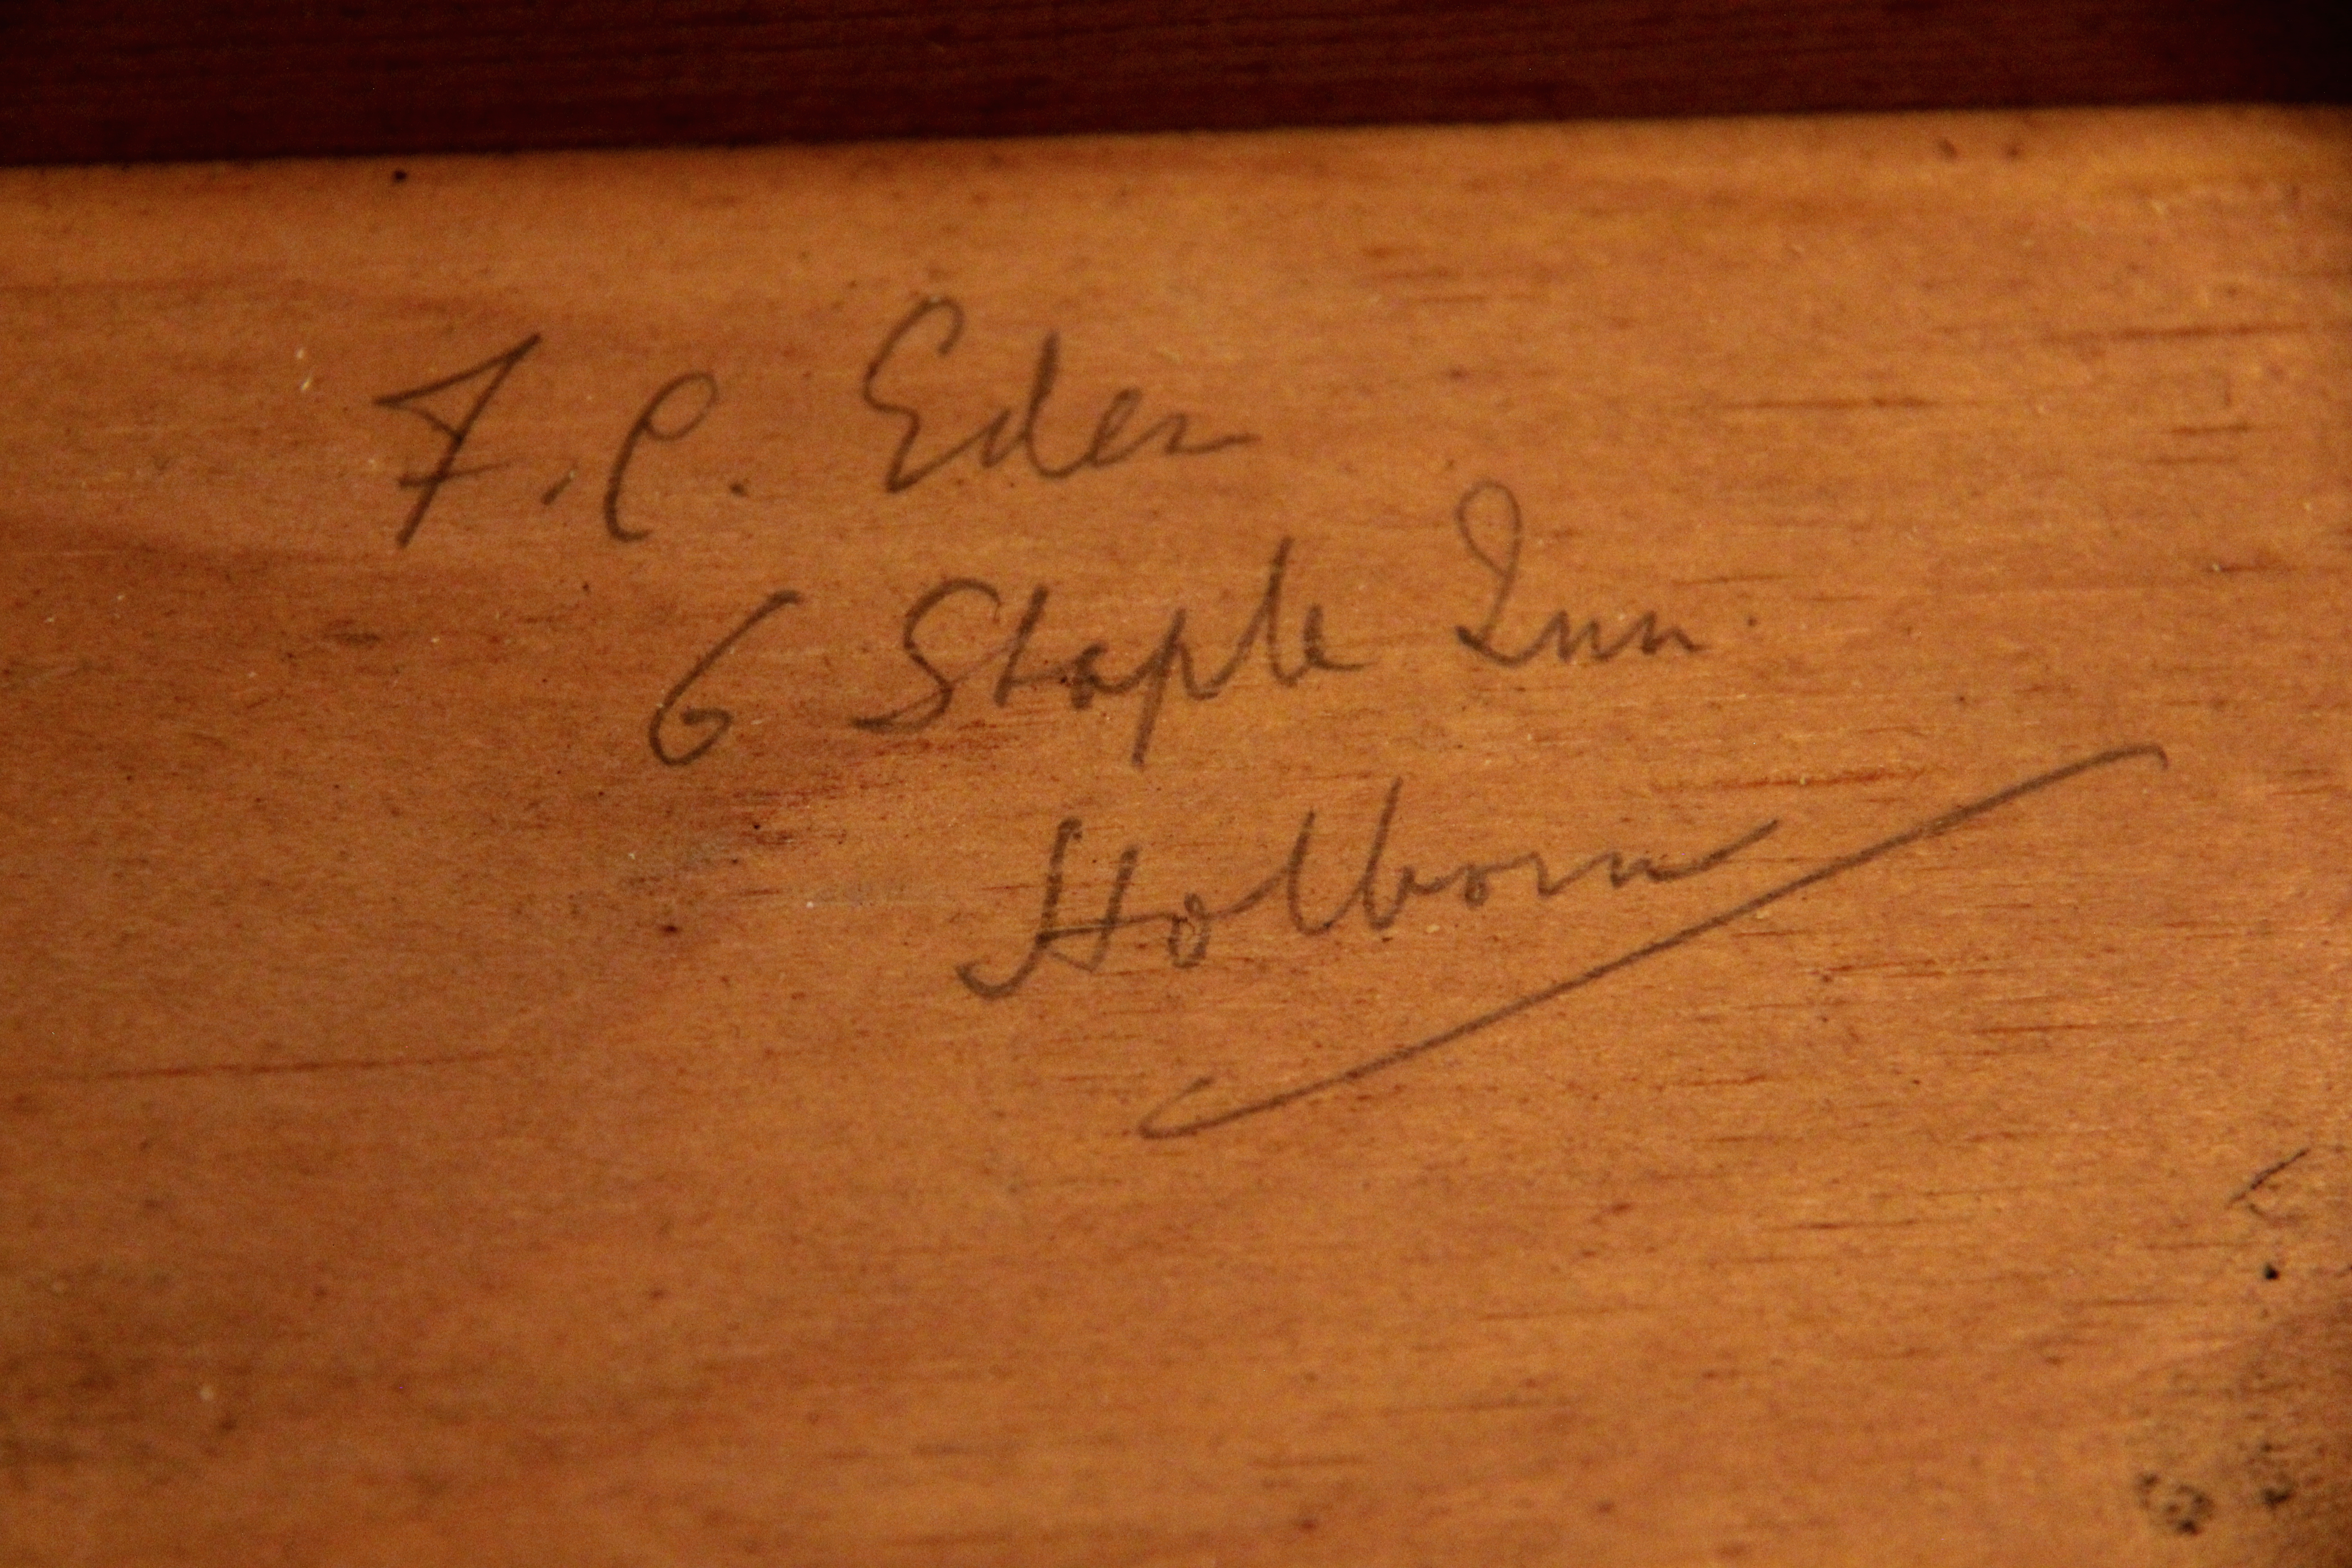 F. C. Eden
6 Staple Inn.
Holborn